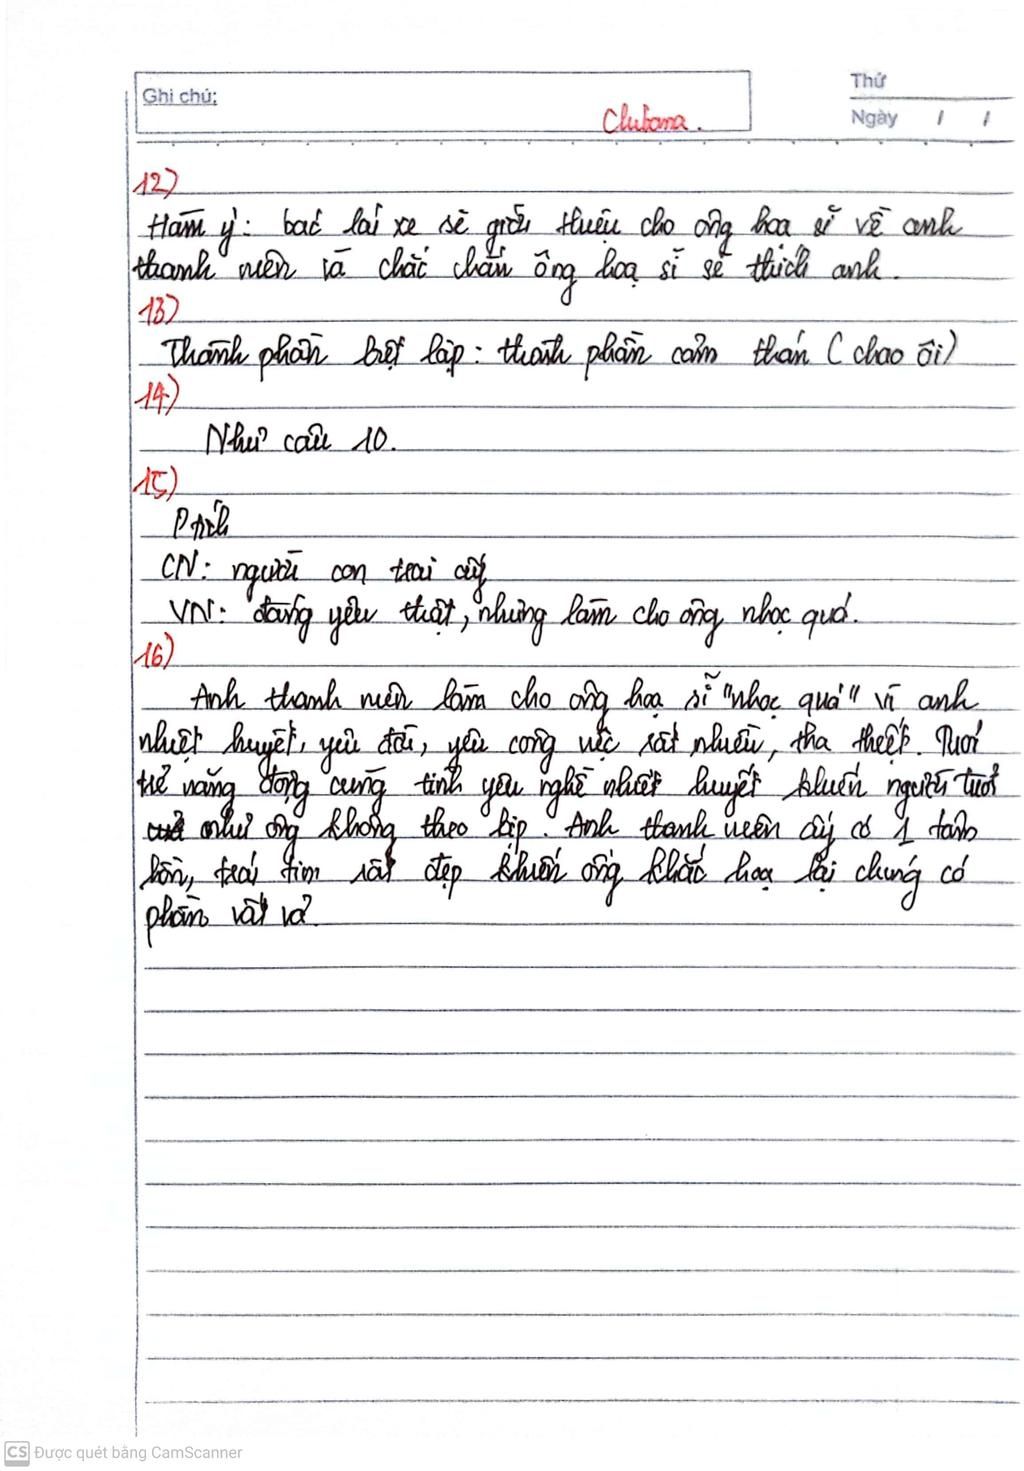 Ghi chú:
Thứ
Ngày / /
12)
Hàm ý: bác lái xe sẽ giới thiệu cho ông hoạ sĩ về anh
thanh niên và chắc chắn ông hoạ sĩ sẽ thích anh.
13)
Thành phần biệt lập: thành phần cảm thán (chao ôi)
14)
Như câu 10.
15)
CN: người con trai ấy
VN: đáng yêu thật, nhưng làm cho ông nhọc quá.
16)
Anh thanh niên làm cho ông hoạ sĩ "nhọc quá" vì anh
nhiệt huyết, yêu đời, yêu công việc rất nhiều, tha thiết. Tuổi
trẻ năng động cùng tình yêu nghề nhiệt huyết khiến người tuổi
như ông không theo kịp. Anh thanh niên ấy có 1 tâm
hồn, trái tim rất đẹp khiến ông khắc hoạ lại chúng có
phần vất vả.
CS Được quét bằng CamScanner